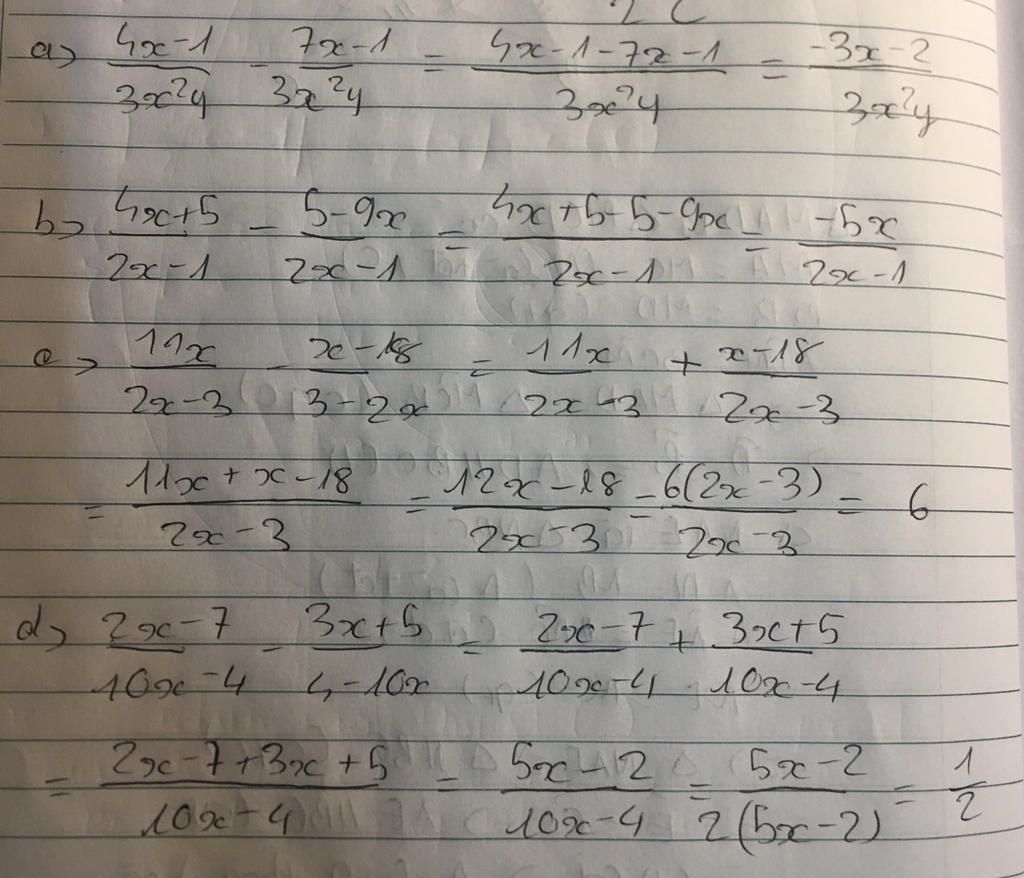 a> (4x-1)/(3x²y) - (7x-1)/(3x²y) = (4x-1-7x-1)/(3x²y) = (-3x-2)/(3x²y)
b> (4x+5)/(2x-1) - (5-9x)/(2x-1) = (4x+5-5-9x)/(2x-1) = (-5x)/(2x-1)
c> (11x)/(2x-3) - (x-18)/(3-2x) = (11x)/(2x-3) + (x-18)/(2x-3)
= (11x+x-18)/(2x-3) = (12x-18)/(2x-3) = (6(2x-3))/(2x-3) = 6
d> (2x-7)/(10x-4) - (3x+5)/(4-10x) = (2x-7)/(10x-4) + (3x+5)/(10x-4)
= (2x-7+3x+5)/(10x-4) = (5x-2)/(10x-4) = (5x-2)/(2(5x-2)) = 1/2